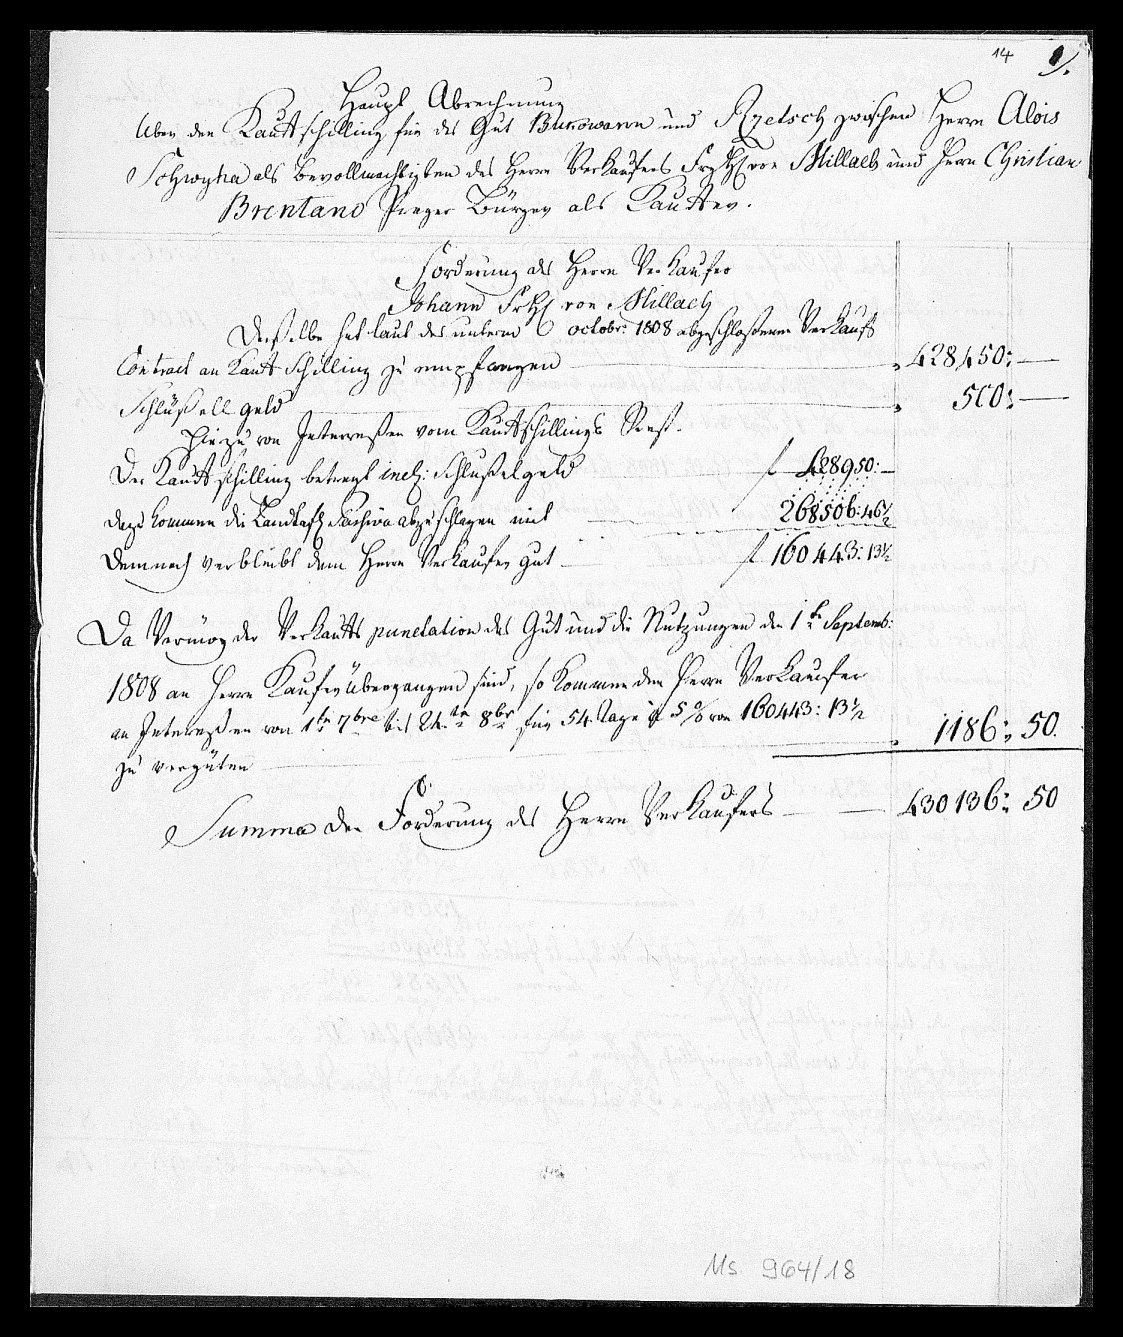 14 1/.
Haupt Abrechnung
Uiber den Kaufschilling für das Gut Bukowann und Rzetsch zwischen Herrn Alois
als bevollmächtigten des Herrn Verkaufers von Hillach und Herrn Christian
Brentano Prager Bürger als Kaufer.
Forderung des Herrn Verkaufers
Johann von Hillach
Derselbe hat laut des unterm octobr: 1808 abgeschloßenen Verkaufs
Contract an Kauf Schilling zu empfangen 428450:—
Schlüßell geld 500:—
Hiezu von Interessen vom Kaufschillings Rest.
Der Kaufschilling betragt incl: Schlußelgeld f 428950:—
dazu kommen die Landtafl abzuschlagen mit 268506:46½
Demnach verbleibt dem Herrn Verkaufer gut f 160443:13½
Da Vermög der Verkaufs punctation das Gut und die Nutzungen den 1t Septemb:
1808 an Herrn Kaufer übergangen sind, so kommen dem Herrn Verkaufer
an Interessen von 1tn 7bre bis 24tn 8br für 54 Tage à 5 % von 160443: 13½
zu vergüten 1186: 50.
Summa der Forderung des Herrn Verkaufers — 430136: 50
Ms 964/18